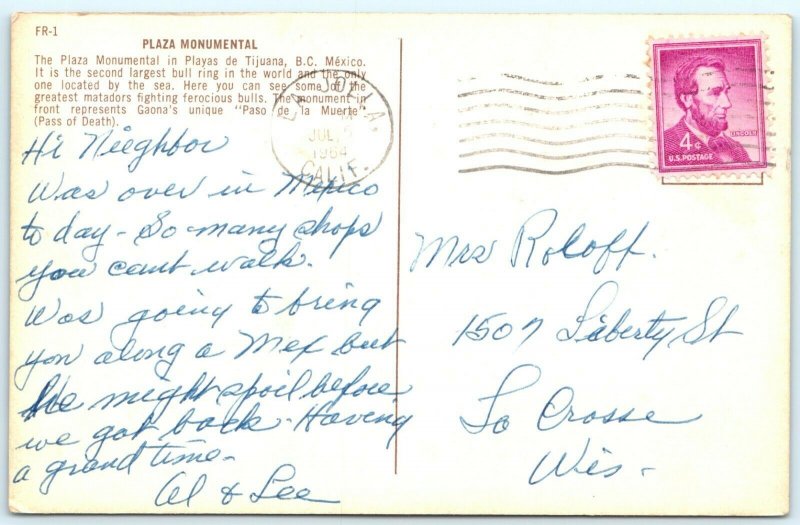 FR-1
PLAZA MONUMENTAL
The Plaza Monumental in Playas de Tijuana, B.C. México.
It is the second largest bull ring in the world and the only
one located by the sea. Here you can see some of the
greatest matadors fighting ferocious bulls. The monument in
front represents Gaona's unique "Paso de la Muerte"
(Pass of Death).
LA JOLLA,
JUL
1964
CALIF.
LINCOLN
4¢
U.S. POSTAGE
Hi Nieghbor
Was over in Mexico
to day - So many shops
you cant walk.
Was going to bring
you along a Mex but
He might spoil before
we got back - Having
a grand time -
Al & Lee
Mrs Roloff.
1507 Liberty St
La Crosse
Wis -